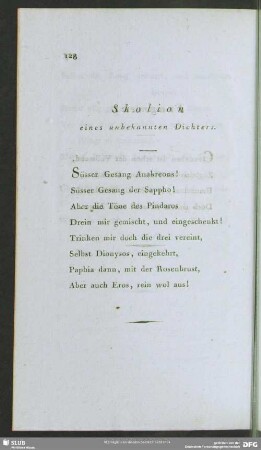 128
Skolion
eines unbekannten Dichters.
Süsser Gesang Anakreons!
Süsser Gesang der Sappho!
Aber die Töne des Pindaros
Drein mir gemischt, und eingeschenkt!
Trinken mir doch die drei vereint,
Selbst Dionysos, eingekehrt,
Paphia dann, mit der Rosenbrust,
Aber auch Eros, rein wol aus!
SLUB
DFG